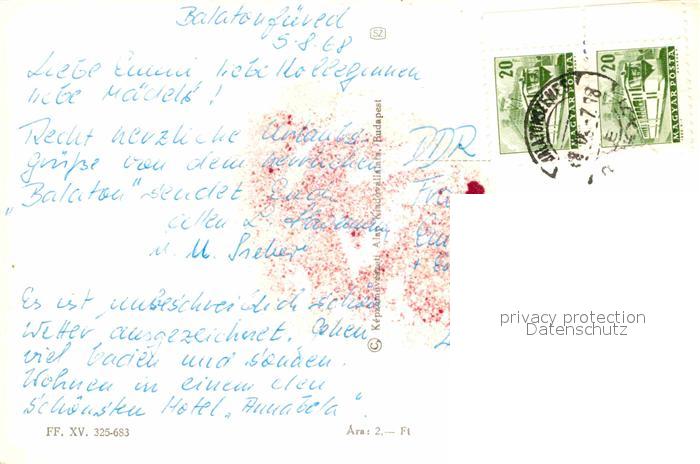 Balatonfüred
5.8.68
Liebe Emmi, liebe Kolleginnen
liebe Mädels!
Recht herzliche Urlaubs-
grüße von dem herrlichen
"Balaton" sendet Euch
allen
u. M.
Es ist unbeschreiblich schön
Wetter ausgezeichnet. Gehen
viel baden und sonnen.
Wohnen in einem der
schönsten Hotel „Annabela".
FF. XV. 325-683
Ára: 2,— Ft
SZ
© Képzőművészeti Alap Kiadóvállalata, Budapest
DDR
20
MAGYAR POSTA
20
MAGYAR POSTA
privacy protection
Datenschutz